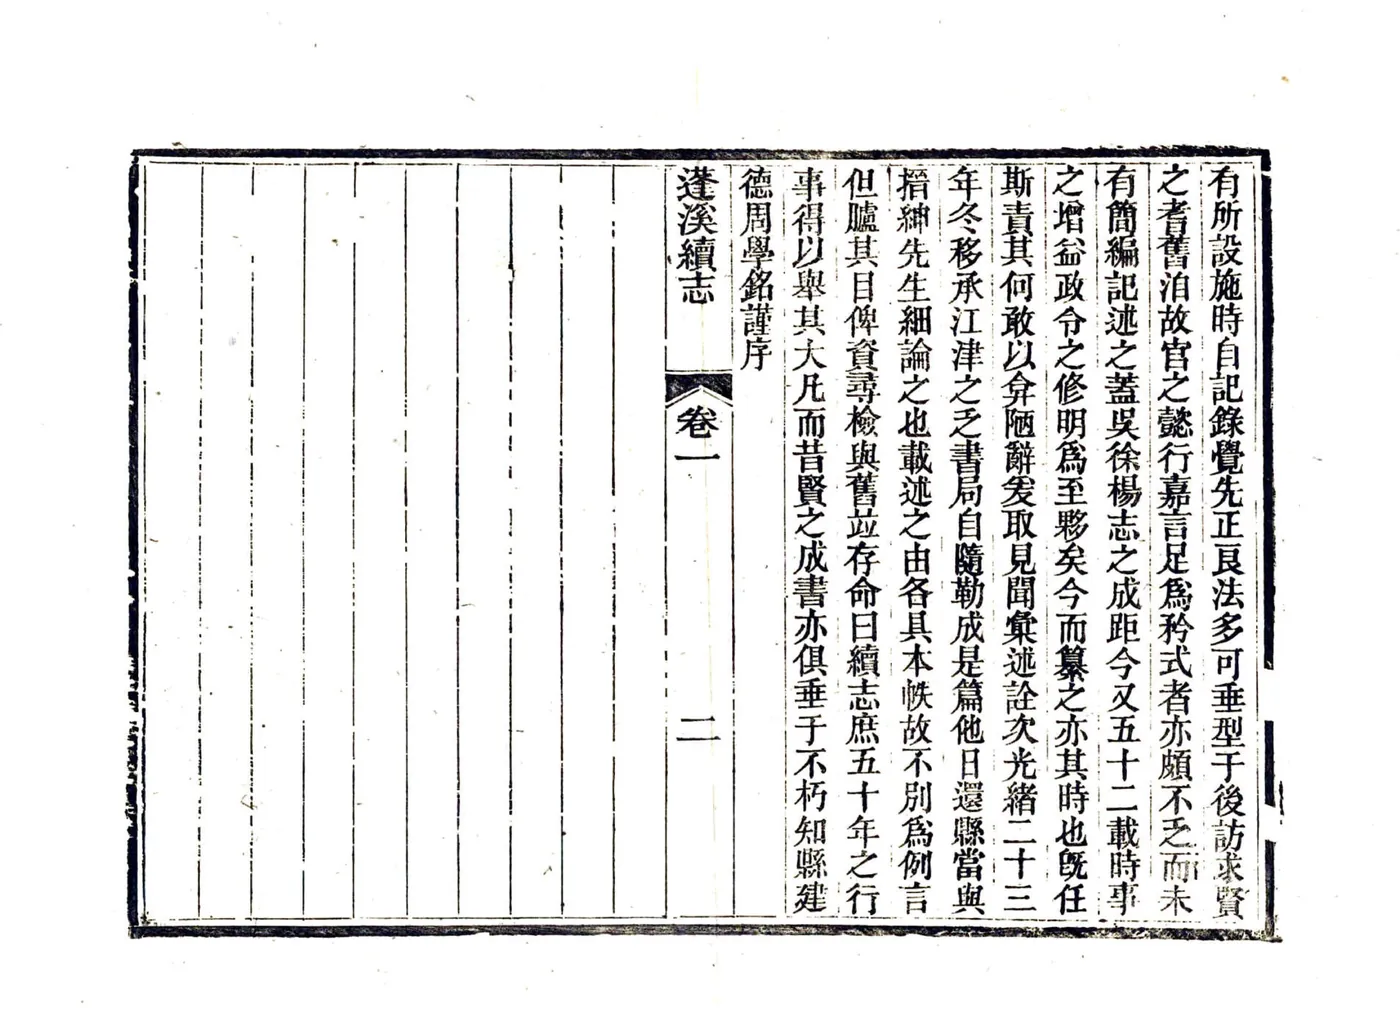 有所設施時自記錄覺先正良法多可垂型于後訪求賢
之耆舊洎故官之懿行嘉言足爲矜式者亦頗不乏而未
有簡編記述之蓋吳徐楊志之成距今又五十二載時事
之增益政令之修明爲至夥矣今而纂之亦其時也旣任
斯責其何敢以弇陋辭爰取見聞彙述詮次光緒二十三
年冬移承江津之乏書局自隨勒成是篇他日還縣當與
搢紳先生細論之也載述之由各具本帙故不別爲例言
但臚其目俾資尋檢與舊竝存命曰續志庶五十年之行
事得以舉其大凡而昔賢之成書亦俱垂于不朽知縣建
德周學銘謹序
蓬溪續志 卷一 二